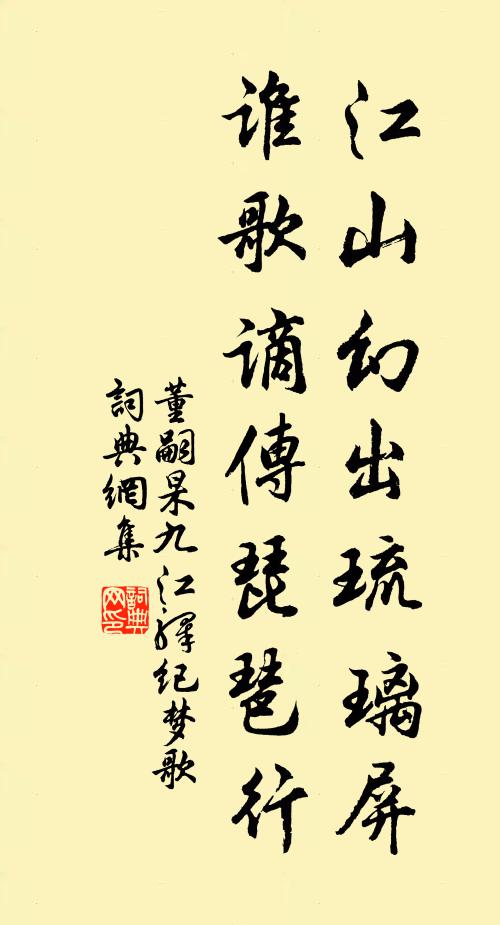 江山幻出琉璃屏
谁歌谪傳琵琶行
董嗣杲九江驿纪梦歌
詞典網集
詞典
网印